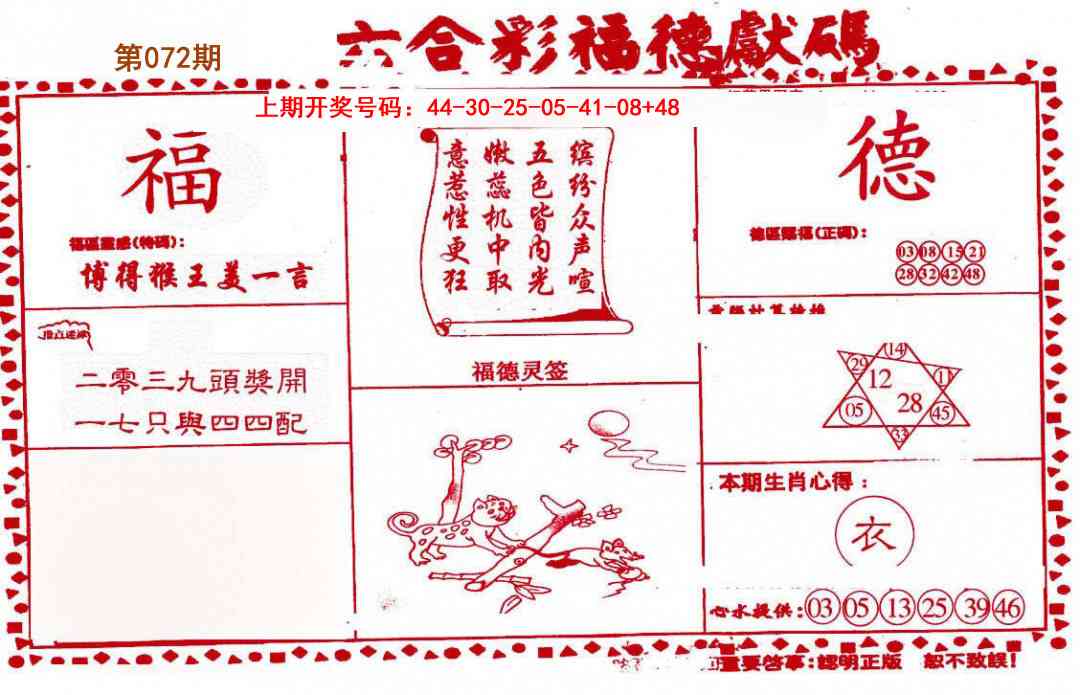 六合彩福德獻碼
第072期
上期开奖号码：44-30-25-05-41-08+48
福
福區靈感(特碼)：
博得猴王美一言
二零三九頭獎開
一七只與四四配
缤纷众声喧
五色皆内光
嫩蕊机中取
意惹性更狂
福德灵签
德
德區賜福(正码)：
03 08 15 21
28 32 42 48
14
29
12
1
05
28
45
33
本期生肖心得：
衣
心水提供：03 05 13 25 39 46
重要啓事：認明正版 恕不致誤！